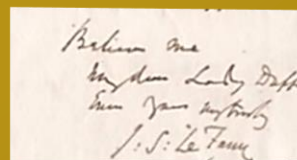 Believe me
My dear Lady Duff
Ever yours
J: S: Le Fanu